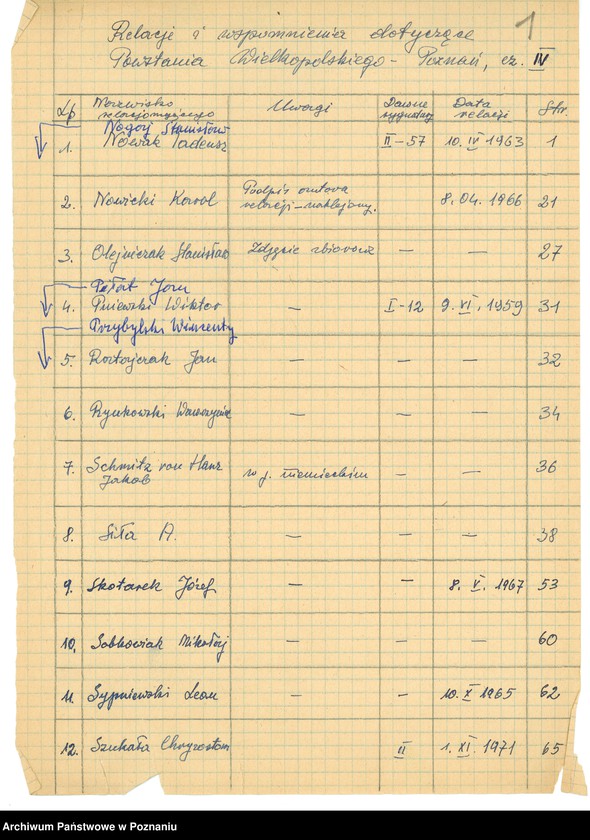 1
Relacje i wspomnienia dotyczące
Powstania Wielkopolskiego - Poznań, cz. IV
Lp Nazwisko relacjonującego Uwagi Dawne sygnatury Data relacji Str.
Nogaj Stanisław
1. Nowak Tadeusz II-57 10. IV 1963 1
2. Nowicki Karol Podpis autora relacji - naklejony. 8. 04. 1966 21
3. Olejniczak Stanisław Zdjęcie zbiorowe — — 27
Pełat Jan
4. Pniewski Wiktor — I-12 9. VI. 1959 31
Przybylski Wincenty
5. Ratajczak Jan — — — 32
6. Rynkowski Wawrzyniec — — — 34
7. Schmitz von Hans Jakob w j. niemieckim — — 36
8. Siła A. — — — 38
9. Skotarek Józef — — 8. V. 1967 53
10. Sobkowiak Mikołaj — — — 60
11. Sypniewski Leon — — 10. X 1965 62
12. Szukała Chryzostom II 1. XI. 1971 65
Archiwum Państwowe w Poznaniu